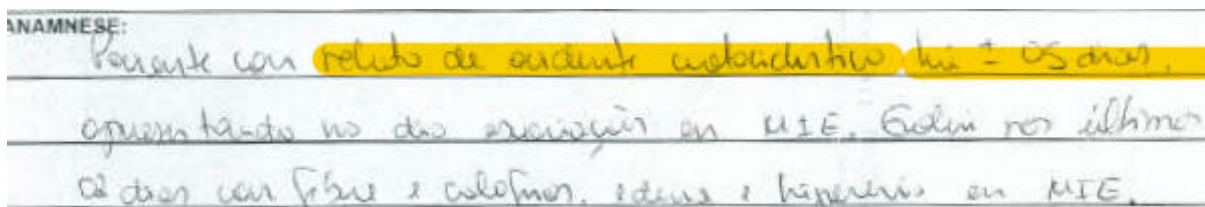 ANAMNESE:
Paciente com relato de acidente motociclístico há ± 05 dias,
apresentando no dia escoriações em MIE. Evolui nos últimos
02 dias com febre e calafrios, edema e hiperemia em MIE.